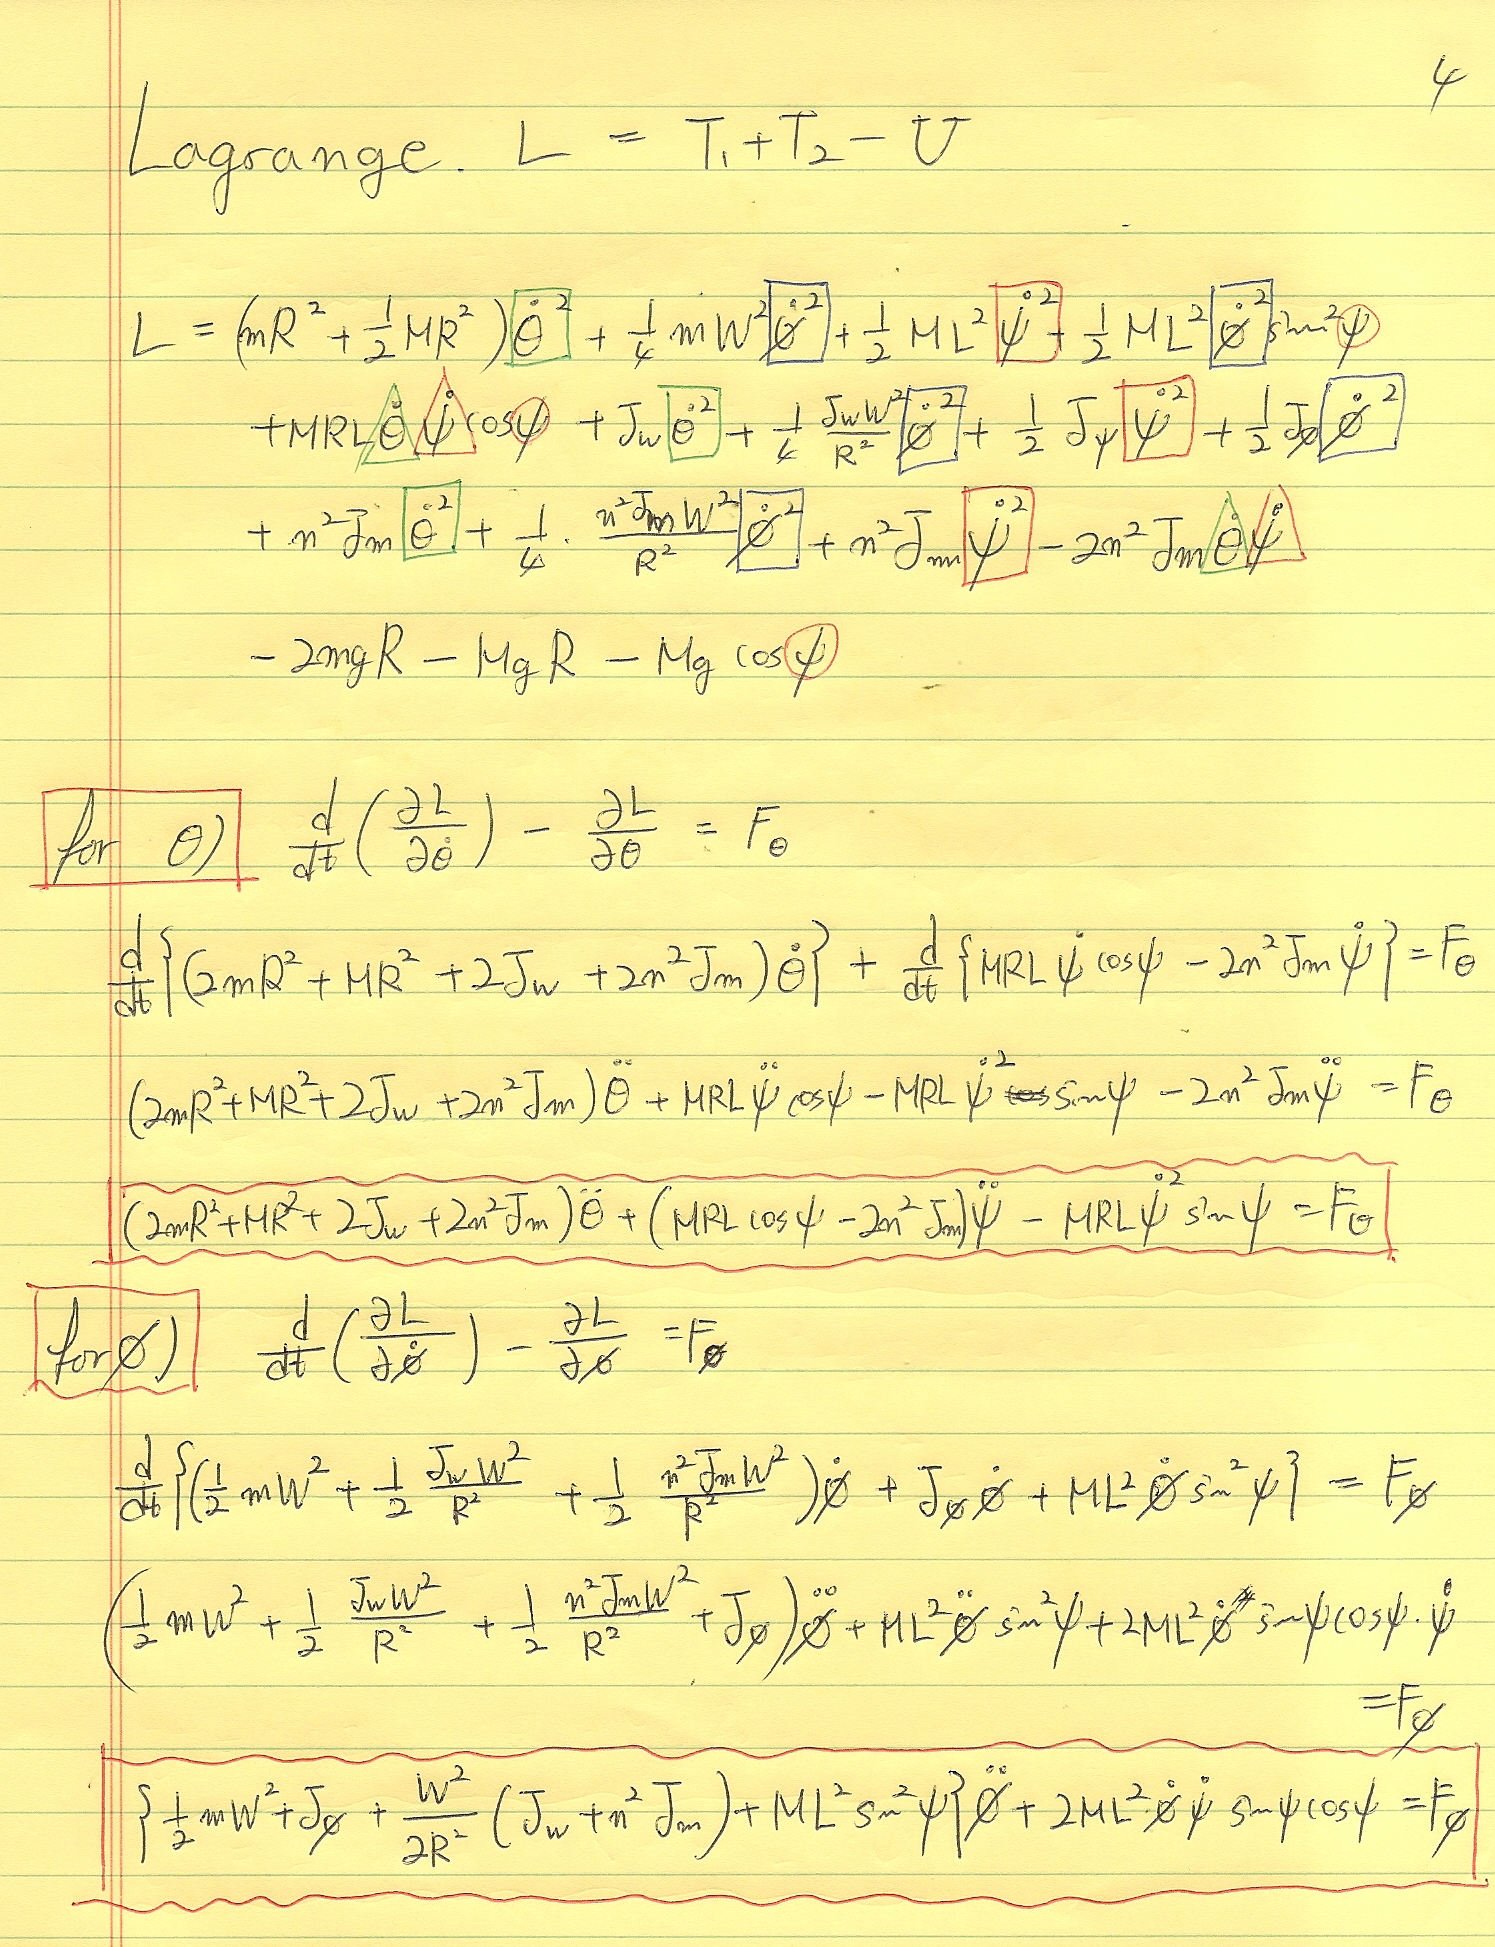 4
Lagrange. L = T₁ + T₂ − U
L = (mR² + ½MR²)θ̇² + ¼mW²φ̇² + ½ML²ψ̇² + ½ML²φ̇²sin²ψ
+MRLθ̇ψ̇cosψ + J_wθ̇² + ¼ J_wW²/R² φ̇² + ½ J_ψψ̇² + ½J_φφ̇²
+ n²J_mθ̇² + ¼ · n²J_mW²/R² φ̇² + n²J_mψ̇² − 2n²J_mθ̇ψ̇
− 2mgR − MgR − Mg cosψ
for θ) d/dt(∂L/∂θ̇) − ∂L/∂θ = F_θ
d/dt{(2mR² + MR² + 2J_w + 2n²J_m)θ̇} + d/dt{MRLψ̇cosψ − 2n²J_mψ̇} = F_θ
(2mR²+MR²+2J_w+2n²J_m)θ̈ + MRLψ̈cosψ − MRLψ̇²sinψ − 2n²J_mψ̈ = F_θ
(2mR²+MR²+2J_w+2n²J_m)θ̈ + (MRLcosψ − 2n²J_m)ψ̈ − MRLψ̇²sinψ = F_θ
for φ) d/dt(∂L/∂φ̇) − ∂L/∂φ = F_φ
d/dt{(½mW² + ½ J_wW²/R² + ½ n²J_mW²/R²)φ̇ + J_φφ̇ + ML²φ̇sin²ψ} = F_φ
(½mW² + ½ J_wW²/R² + ½ n²J_mW²/R² + J_φ)φ̈ + ML²φ̈ sin²ψ + 2ML²φ̇ sinψcosψ·ψ̇
= F_φ
{½mW² + J_φ + W²/2R² (J_w + n²J_m) + ML²sin²ψ}φ̈ + 2ML²φ̇ψ̇ sinψcosψ = F_φ